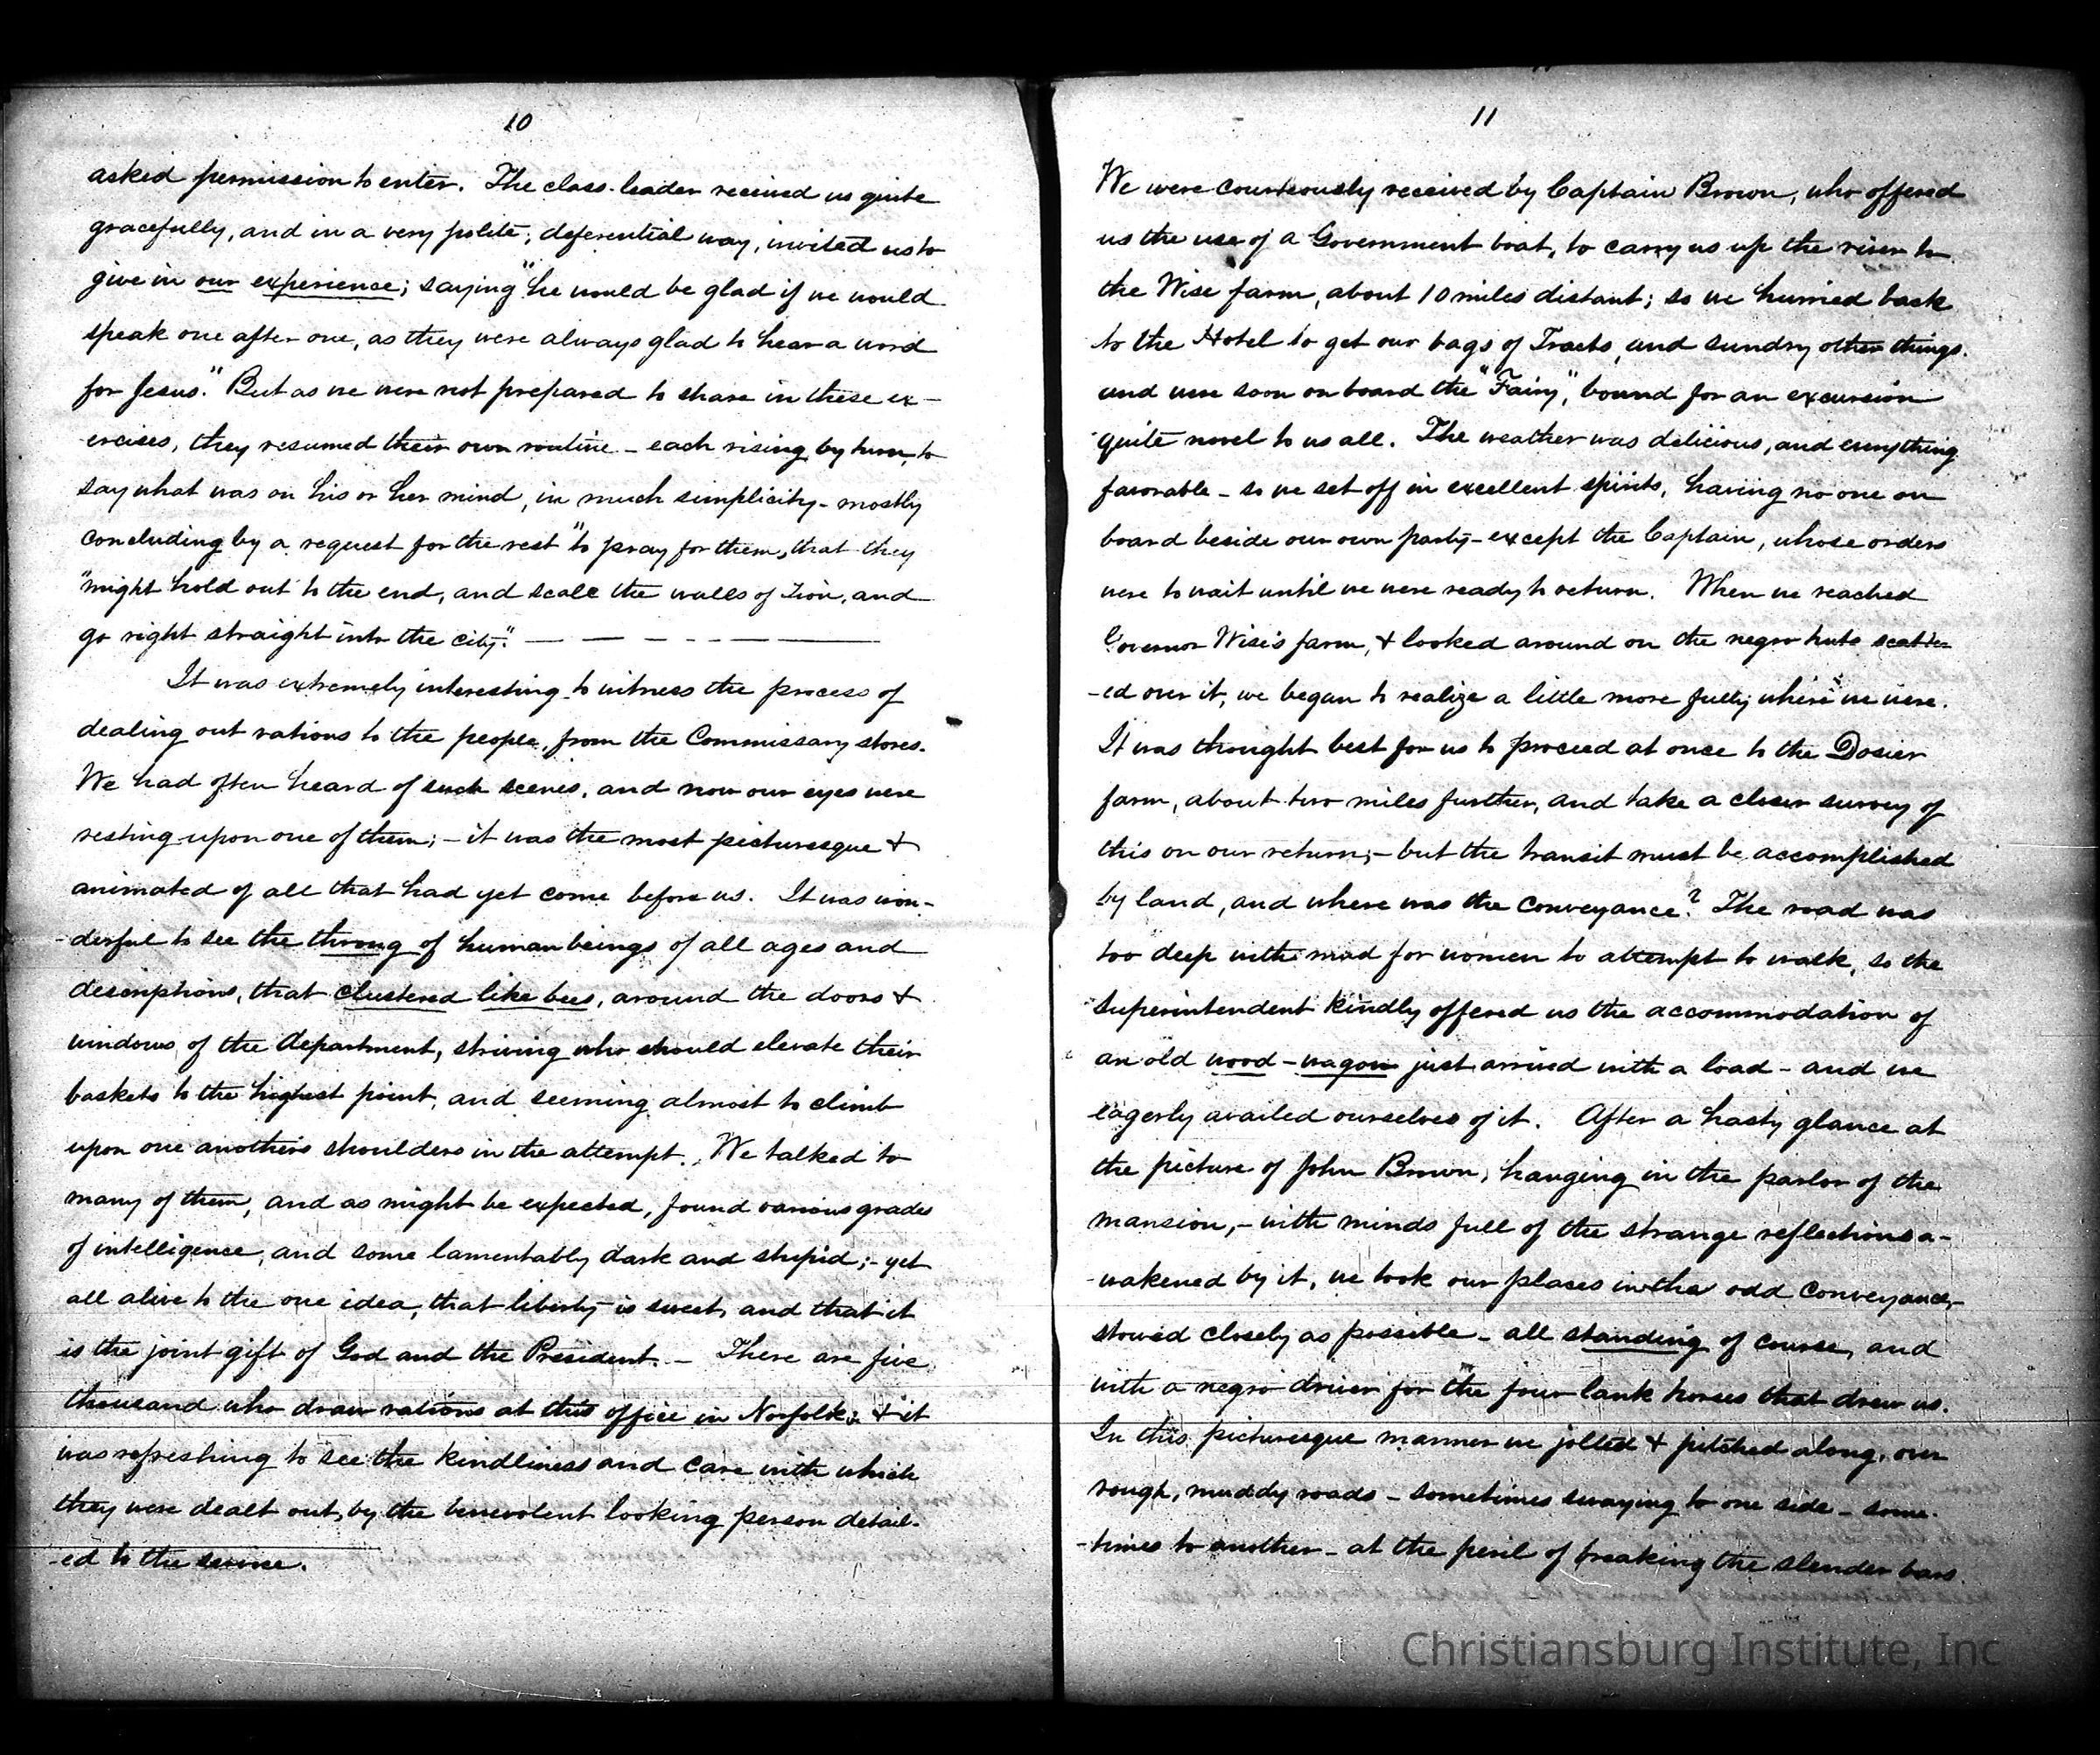 10
asked permission to enter. The class-leader received us quite
gracefully, and in a very polite, deferential way, invited us to
give in our experience; saying "he would be glad if we would
speak one after one, as they were always glad to hear a word
for Jesus." But as we were not prepared to share in these ex-
ercises, they resumed their own routine - each rising by turn, to
say what was on his or her mind, in much simplicity - mostly
concluding by a request for the rest "to pray for them, that they
"might hold out to the end, and scale the walls of Zion, and
go right straight into the city." — — - - - ———
It was extremely interesting to witness the process of
dealing out rations to the people, from the Commissary stores.
We had often heard of such scenes, and now our eyes were
resting upon one of them; - it was the most picturesque &
animated of all that had yet come before us. It was won-
-derful to see the throng of human beings of all ages and
descriptions, that clustered like bees, around the doors &
windows of the department, striving who should elevate their
baskets to the highest point, and seeming almost to climb
upon one anothers shoulders in the attempt. We talked to
many of them, and as might be expected, found various grades
of intelligence, and some lamentably dark and stupid; - yet
all alive to the one idea, that liberty is sweet, and that it
is the joint gift of God and the President. - There are five
thousand who draw rations at this office in Norfolk; & it
was refreshing to see the kindliness and care with which
they were dealt out, by the benevolent looking person detail-
-ed to the service.
11
We were courteously received by Captain Brown, who offered
us the use of a Government boat, to carry us up the river to
the Wise farm, about 10 miles distant; so we hurried back
to the Hotel to get our bags of Tracts, and sundry other things.
and were soon on board the "Fairy", bound for an excursion
quite novel to us all. The weather was delicious, and everything
favorable - so we set off in excellent spirits, having no one on
board beside our own party - except the Captain, whose orders
were to wait until we were ready to return. When we reached
Governor Wise's farm, & looked around on the negro huts scatter
-ed over it, we began to realize a little more fully where we were.
It was thought best for us to proceed at once to the Dosier
farm, about two miles further, and take a closer survey of
this on our return; - but the transit must be accomplished
by land, and where was the conveyance? The road was
too deep with mud for women to attempt to walk, so the
Superintendent kindly offered us the accommodation of
an old wood-wagon just arrived with a load - and we
eagerly availed ourselves of it. After a hasty glance at
the picture of John Brown, hanging in the parlor of the
mansion, - with minds full of the strange reflections a-
-wakened by it, we took our places in the odd conveyance,
stowed closely as possible - all standing of course, and
with a negro driver for the four lank horses that drew us.
In this picturesque manner we jolted & pitched along, over
rough, muddy roads - sometimes swaying to one side - some-
-times to another - at the peril of breaking the slender bars
Christiansburg Institute, Inc